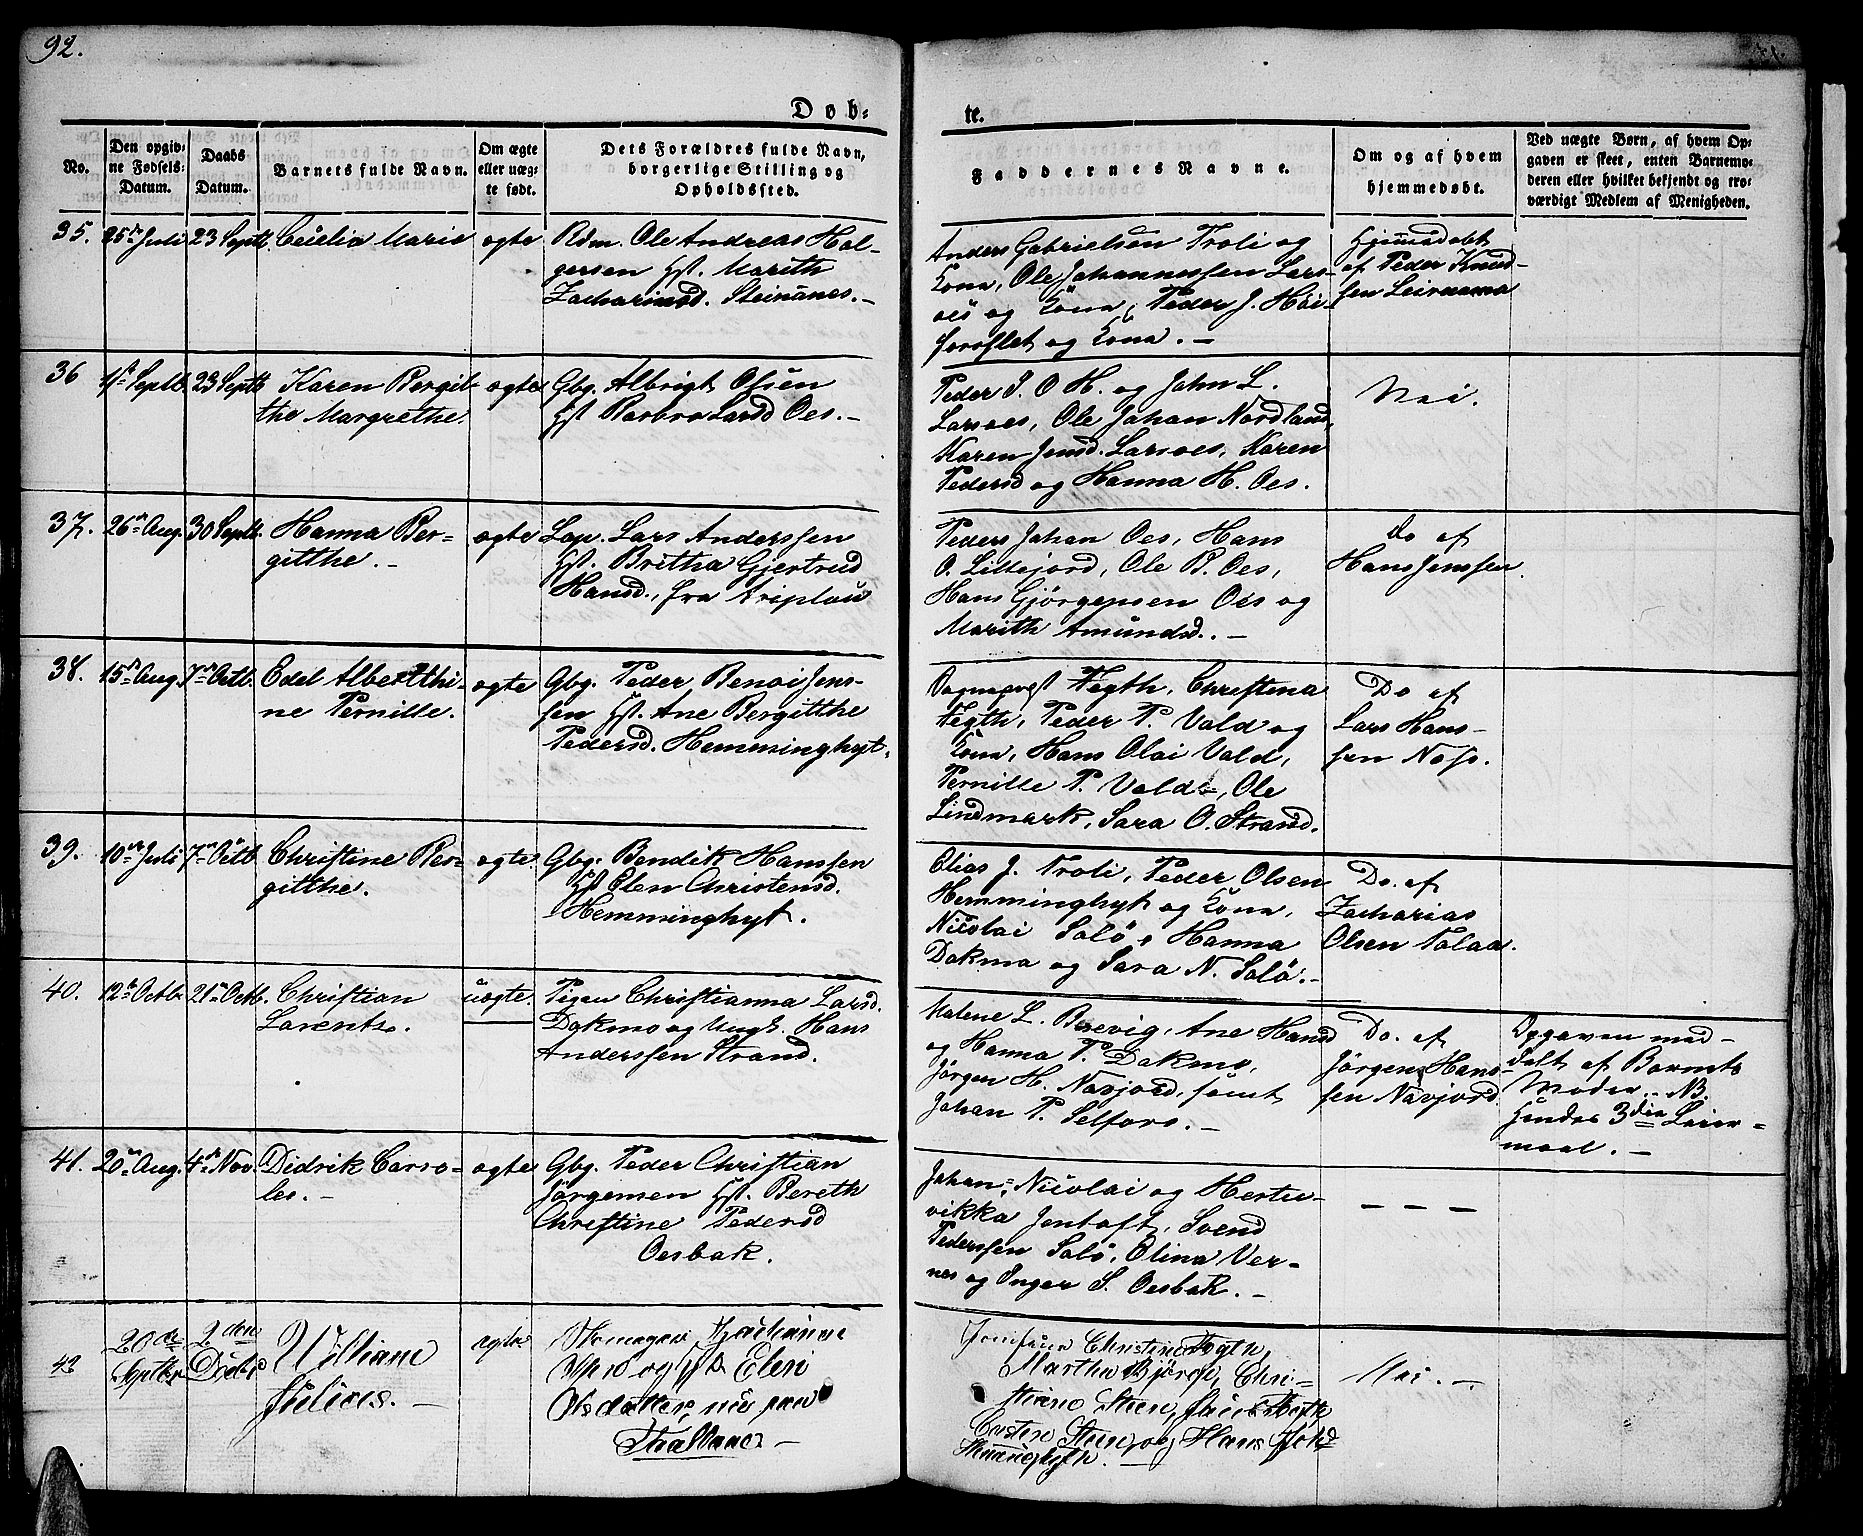 92.
Døb-
te.
No.
Den opgiv-
ne Fødsels-
Datum.
Daabs
Datum.
Barnets fulde Navn.
Om ægte
eller uæg-
te født.
Dets Forældres fulde Navn,
borgerlige Stilling og
Opholdssted.
Faddernes Navne.
Om og af hvem
hjemmedøbt.
Ved uægte Børn, af hvem Op-
gaven er skeet, enten Barnemo-
deren eller hvilket bekjendt og tro-
værdigt Medlem af Menigheden.
35.
25de Juli
23 Septb
Cecelia Marie
ægte
Rdm. Ole Andreas Hol-
gersen Hst. Marith
Zachariasd. Steinanes.-
Anders Gabrielsen Troli og
Kona, Ole Johannessen Lars-
oes og Kona, Peder J. Höi-
forsflet og Kona.-
Hjemmedøbt
af Peder Knud-
sen Leiraamo
36
11te Septb.
23 Septb
Karen Bergit-
the Margrethe.
ægte
Gbg. Albrigt Olsen
Hst Barbro Larsd Oes.-
Peder J. O. H. og John L.
Larsoes, Ole Johan Nordland,
Karen Jensd. Larsoes, Karen
Pedersd og Hanna H. Oes.
Nei.
37.
26de Aug.
30 Septb.
Hanna Ber-
gitthe.-
ægte
Lap. Lars Anderssen
Hst. Britha Gjertrud
Hansd., fra Kriplau
Peder Johan Oes, Hans
O. Lillejord, Ole P. Oes,
Hans Gjörgensen Oes og
Marith Amundsd.-
Do af
Hans Jenssen.
38.
15de Aug.
7de Octb.
Edel Alberthi-
ne Pernille.
ægte
Gbg. Peder Benoi Jens-
sen Hst. Ane Bergitthe
Pedersd. Hemminghyt.
Sognepræst Hegth, Christina
Hegth, Peder P. Vald og
Kona, Hans Olai Vald,
Pernille P. Vald, Ole
Lindmark, Sara O. Strand.
Do af
Lars Hans-
sen Næss.
39.
10de Juli
7de Octb
Christine Ber-
gitthe.
ægte
Gbg. Bendik Hanssen
Hst Elen Christensd.
Hemminghyt.
Elias J. Troli, Peder Olsen
Hemminghyt og Kona,
Nicolai Salö, Hanna
Dokma og Sara N. Salö.-
Do. af
Zacharias
Olsen Tolaa.
40.
12te Octb.
21de Octb.
Christian
Larents.
uægte.
Pigen Christianna Larsd.
Dokmo og Ungk. Hans
Anderssen Strand.
Malene L. Brevig, Ane Hansd
og Hanna P. Dokmo,
Jörgen H. Navjord, samt
Johan P. Selfors.-
Do. af
Jörgen Hans-
sen Navjord
Opgaven med-
delt af Barnets
Moder. NB.
Hendes 3die Leier-
maal.-
41.
20de Aug.
4de Nov.
Didrik Carso-
les.-
ægte
Gbg. Peder Christian
Jörgensen Hst. Bereth
Christine Pedersd
Oesbak.
Johan, Nicolai og Hertu-
vikka Jentoft, Svend
Pederssen Salö, Elina Ver-
nes og Inger S. Oesbak.-
- - -
42
20de
Septbr
2den
Decbr
William
Julius.-
ægte
og Hst Elen
Olsdatter, nu paa
Christine Hegth,
Martha Björge, Chri-
Steen og Hans
Nei.-